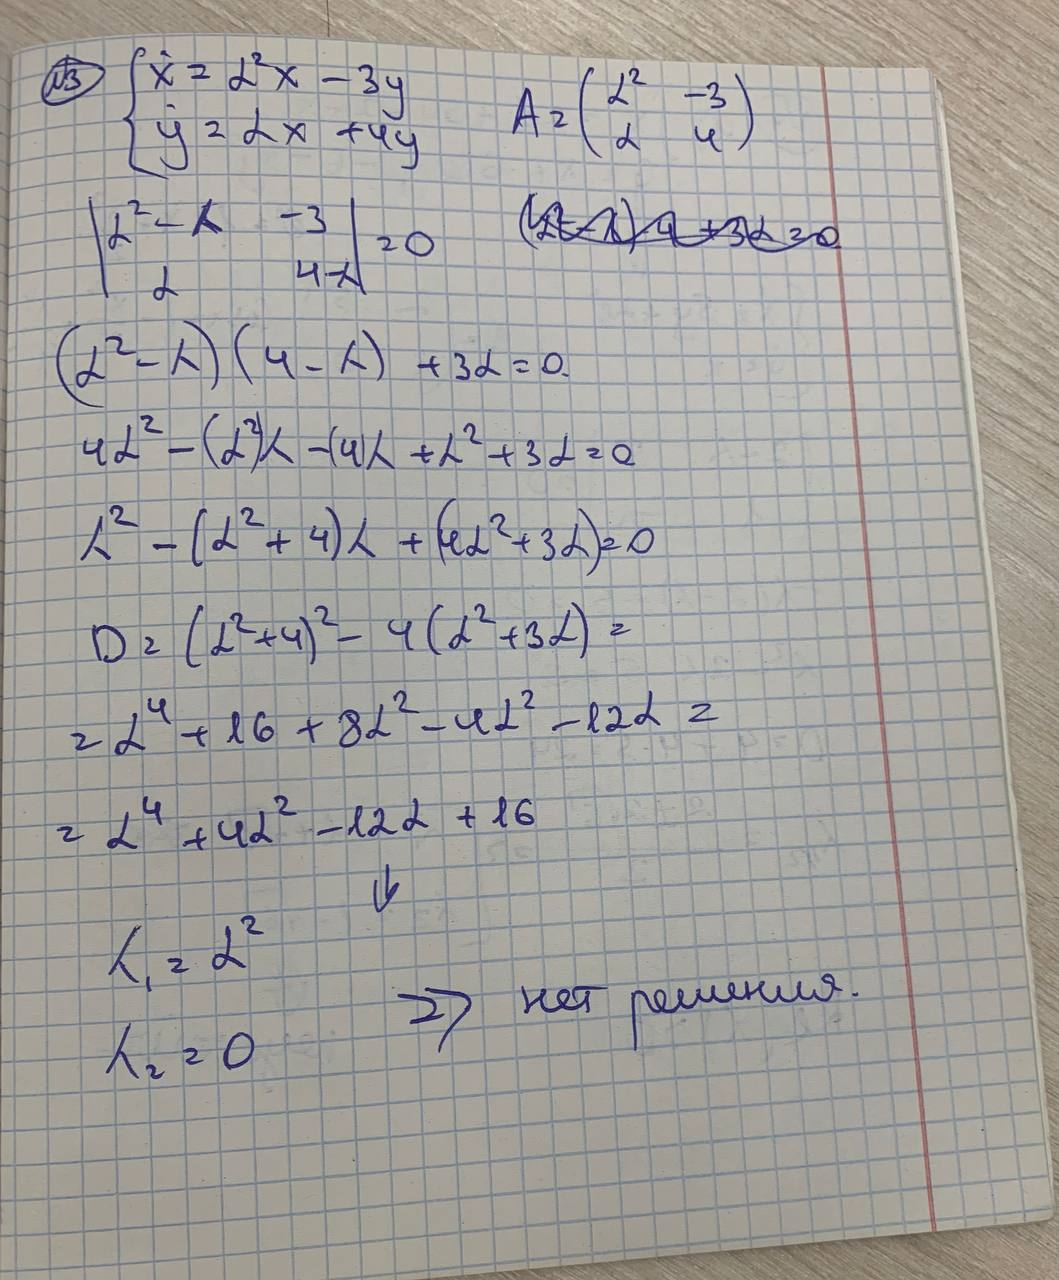 №3 { ẋ = α²x − 3y
ẏ = αx + 4y
A = ( α² −3
α 4 )
| α² − λ −3 | = 0
α 4−λ
(α² − λ)(4 − λ) + 3α = 0.
4α² − (α²)λ − (4)λ + λ² + 3α = 0
λ² − (α² + 4)λ + (4α² + 3α) = 0
D = (α² + 4)² − 4(α² + 3α) =
= α⁴ + 16 + 8α² − 4α² − 12α =
= α⁴ + 4α² − 12α + 16
↓
λ₁ = α²
λ₂ = 0
⇒ нет решения.